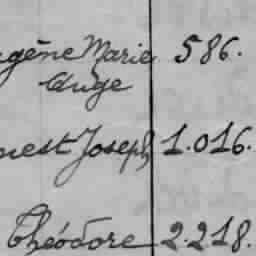 gène Marie 586.
Ange
nest Joseph 1.016.
Théodore 2.218.